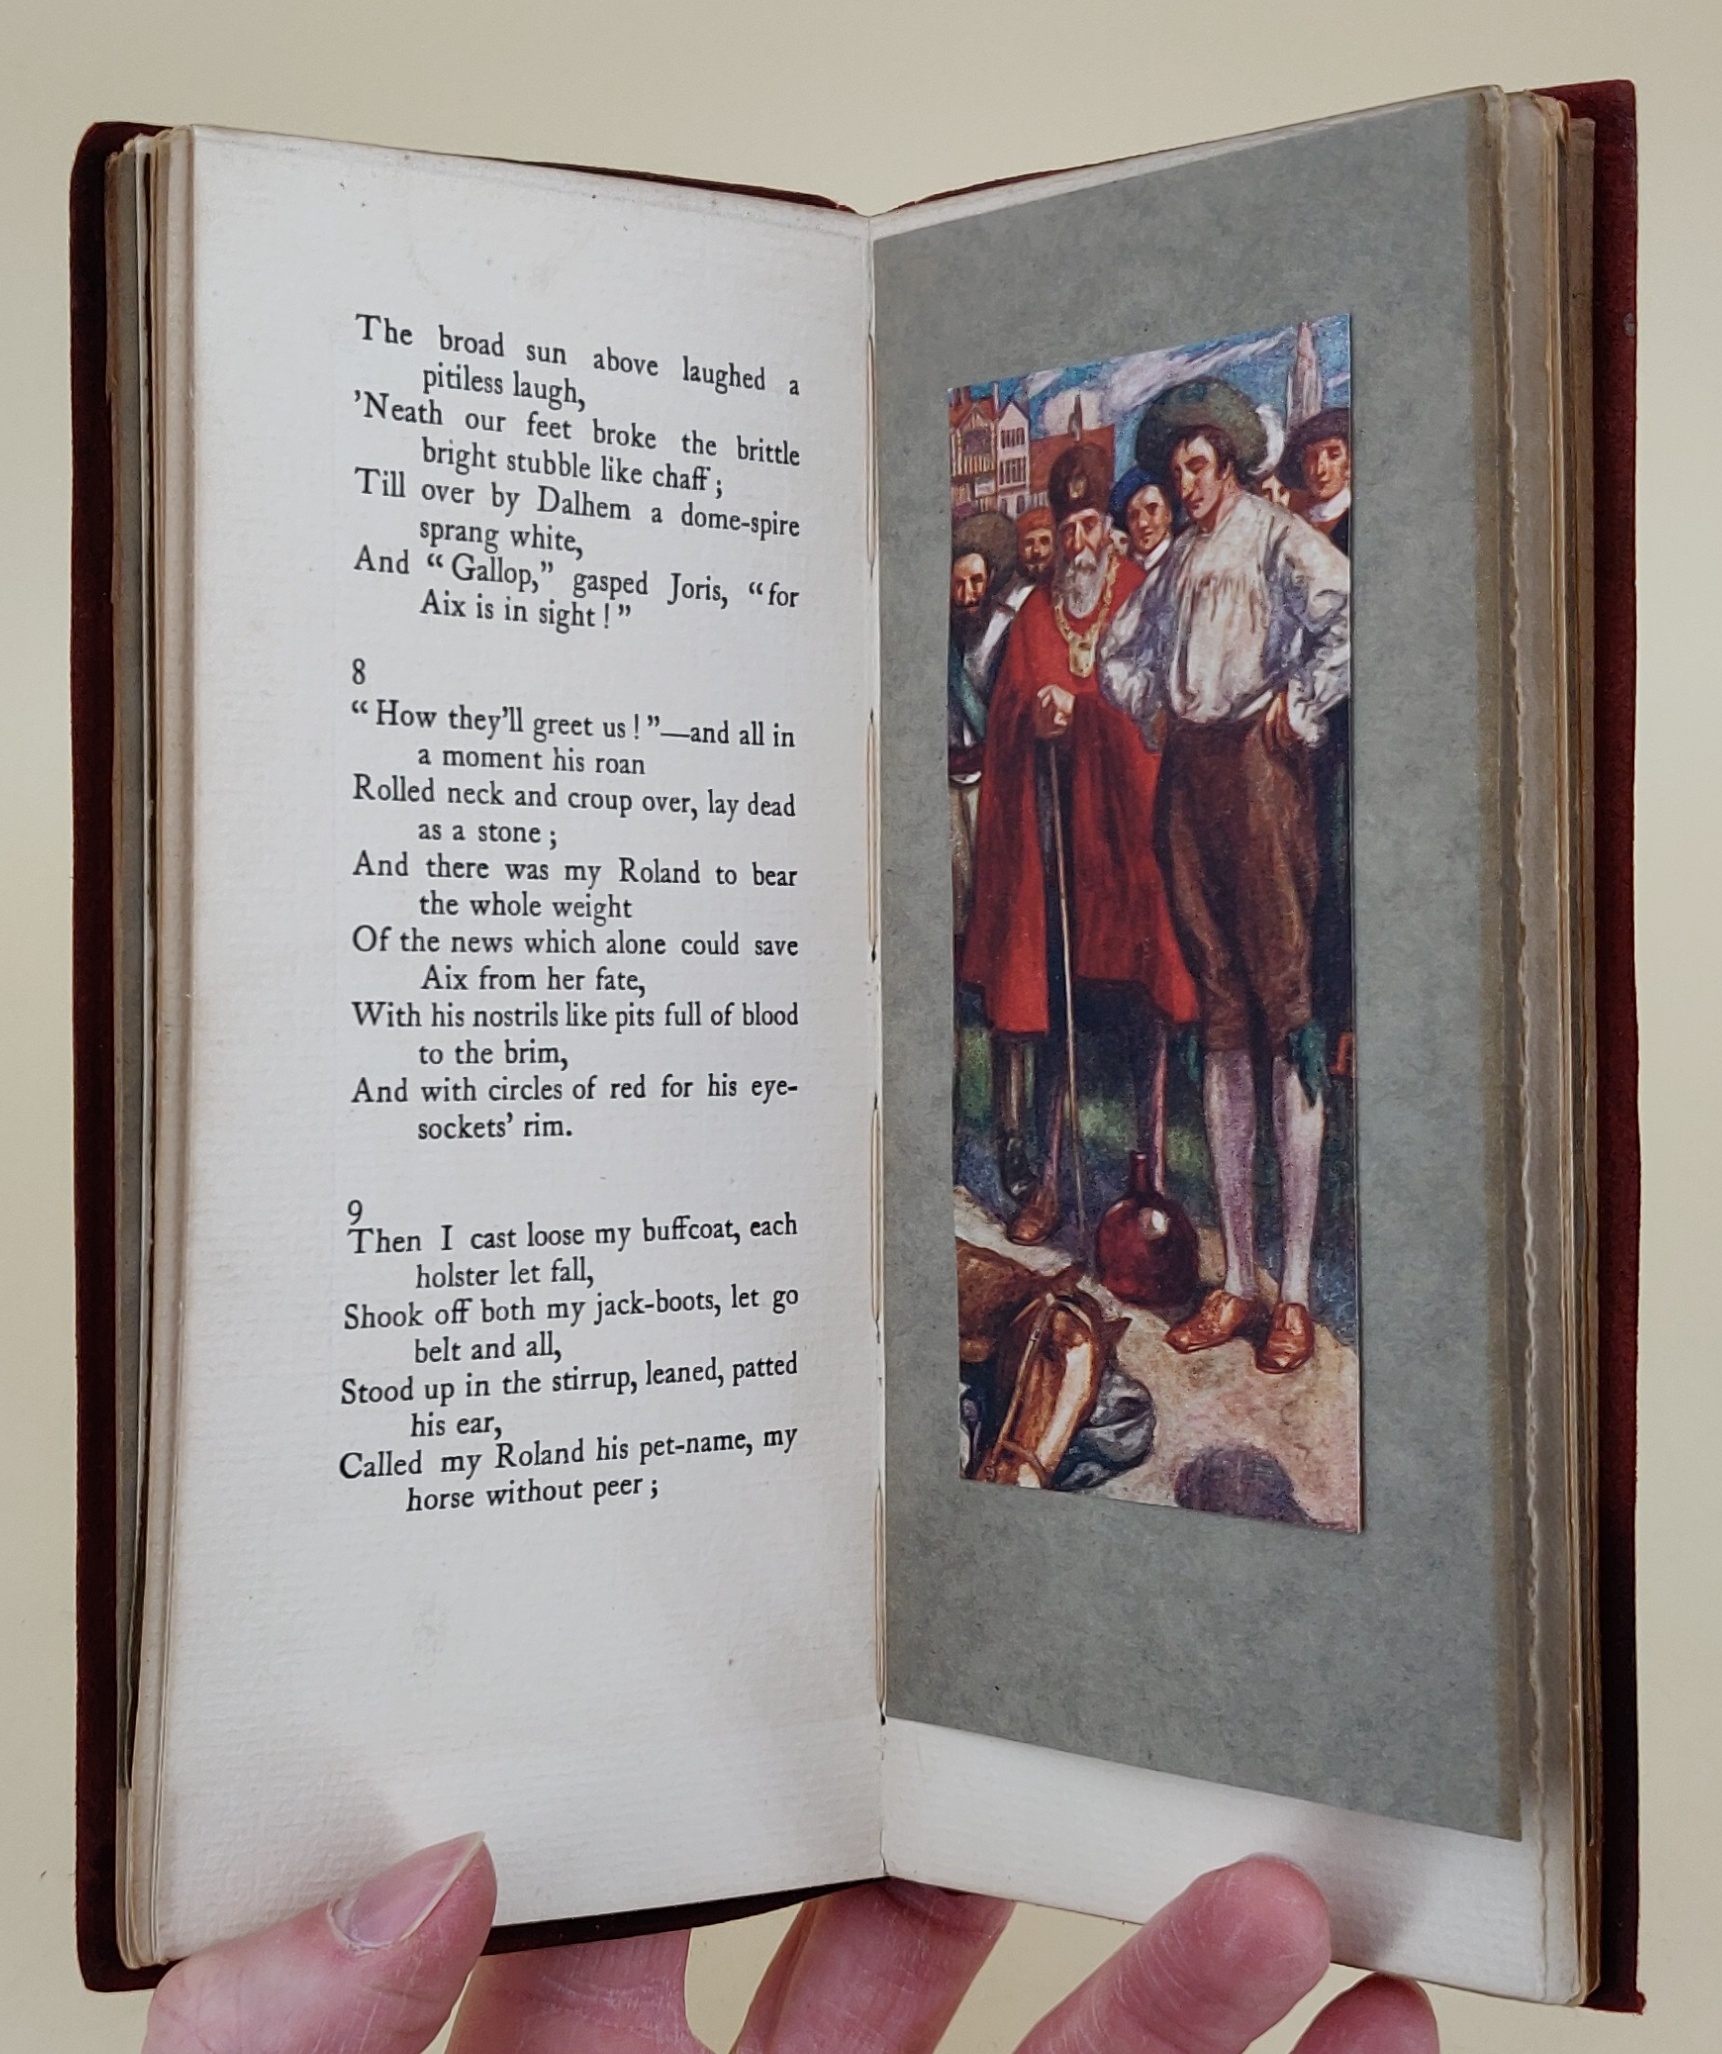 The broad sun above laughed a
pitiless laugh,
’Neath our feet broke the brittle
bright stubble like chaff ;
Till over by Dalhem a dome-spire
sprang white,
And “ Gallop,” gasped Joris, “ for
Aix is in sight ! ”
8
“ How they’ll greet us ! ”—and all in
a moment his roan
Rolled neck and croup over, lay dead
as a stone ;
And there was my Roland to bear
the whole weight
Of the news which alone could save
Aix from her fate,
With his nostrils like pits full of blood
to the brim,
And with circles of red for his eye-
sockets’ rim.
9
Then I cast loose my buffcoat, each
holster let fall,
Shook off both my jack-boots, let go
belt and all,
Stood up in the stirrup, leaned, patted
his ear,
Called my Roland his pet-name, my
horse without peer ;